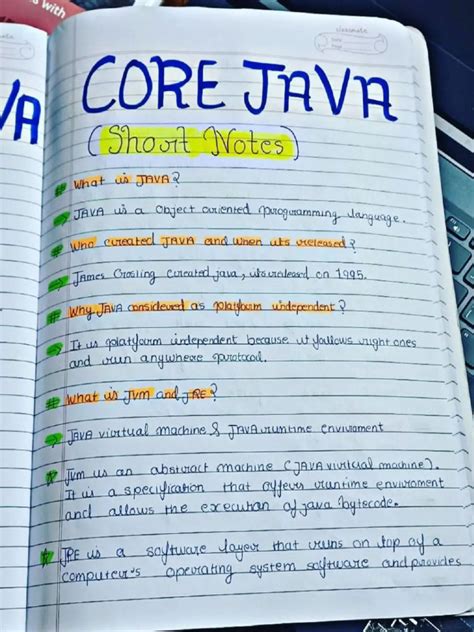 s with
VA
classmate
CORE JAVA
(Short Notes)
# What is JAVA?
→ JAVA is a Object oriented programming language.
# Who created JAVA and when its released?
→ James Crosling created java, its released on 1995.
# Why JAVA considered as platform independent?
→ It is platform independent because it follows right ones
and run anywhere protocol.
# What is Jvm and JRE?
→ JAVA virtual machine & JAVA runtime enviroment
☆ Jvm is an abstract machine (JAVA virtual machine).
It is a specification that offers runtime enviroment
and allows the execution of java bytecode.
☆ JRE is a software layer that runs on top of a
computer's operating system software and provides